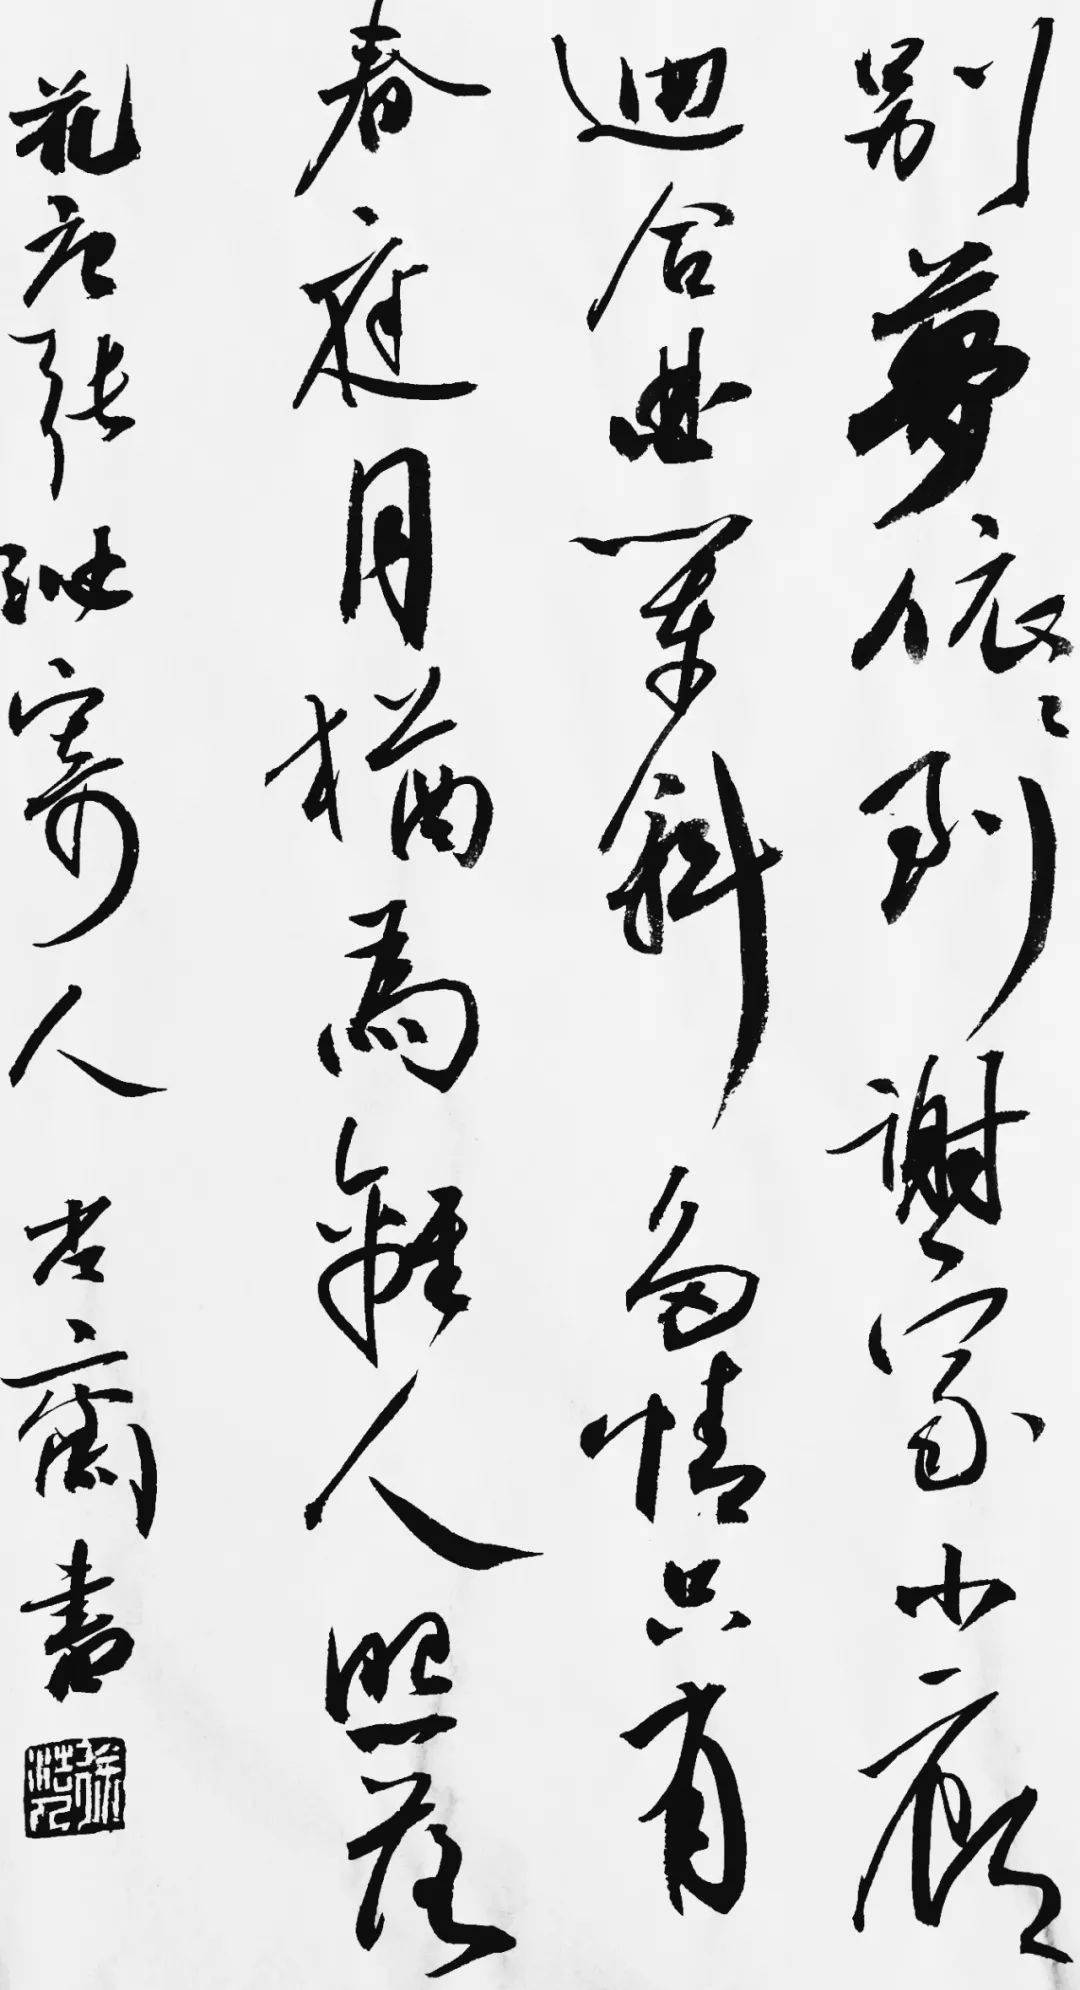 別夢依〻到謝家小廊
迴合曲闌斜多情只有
春庭月猶為離人照落
花唐張泌寄人 齋書